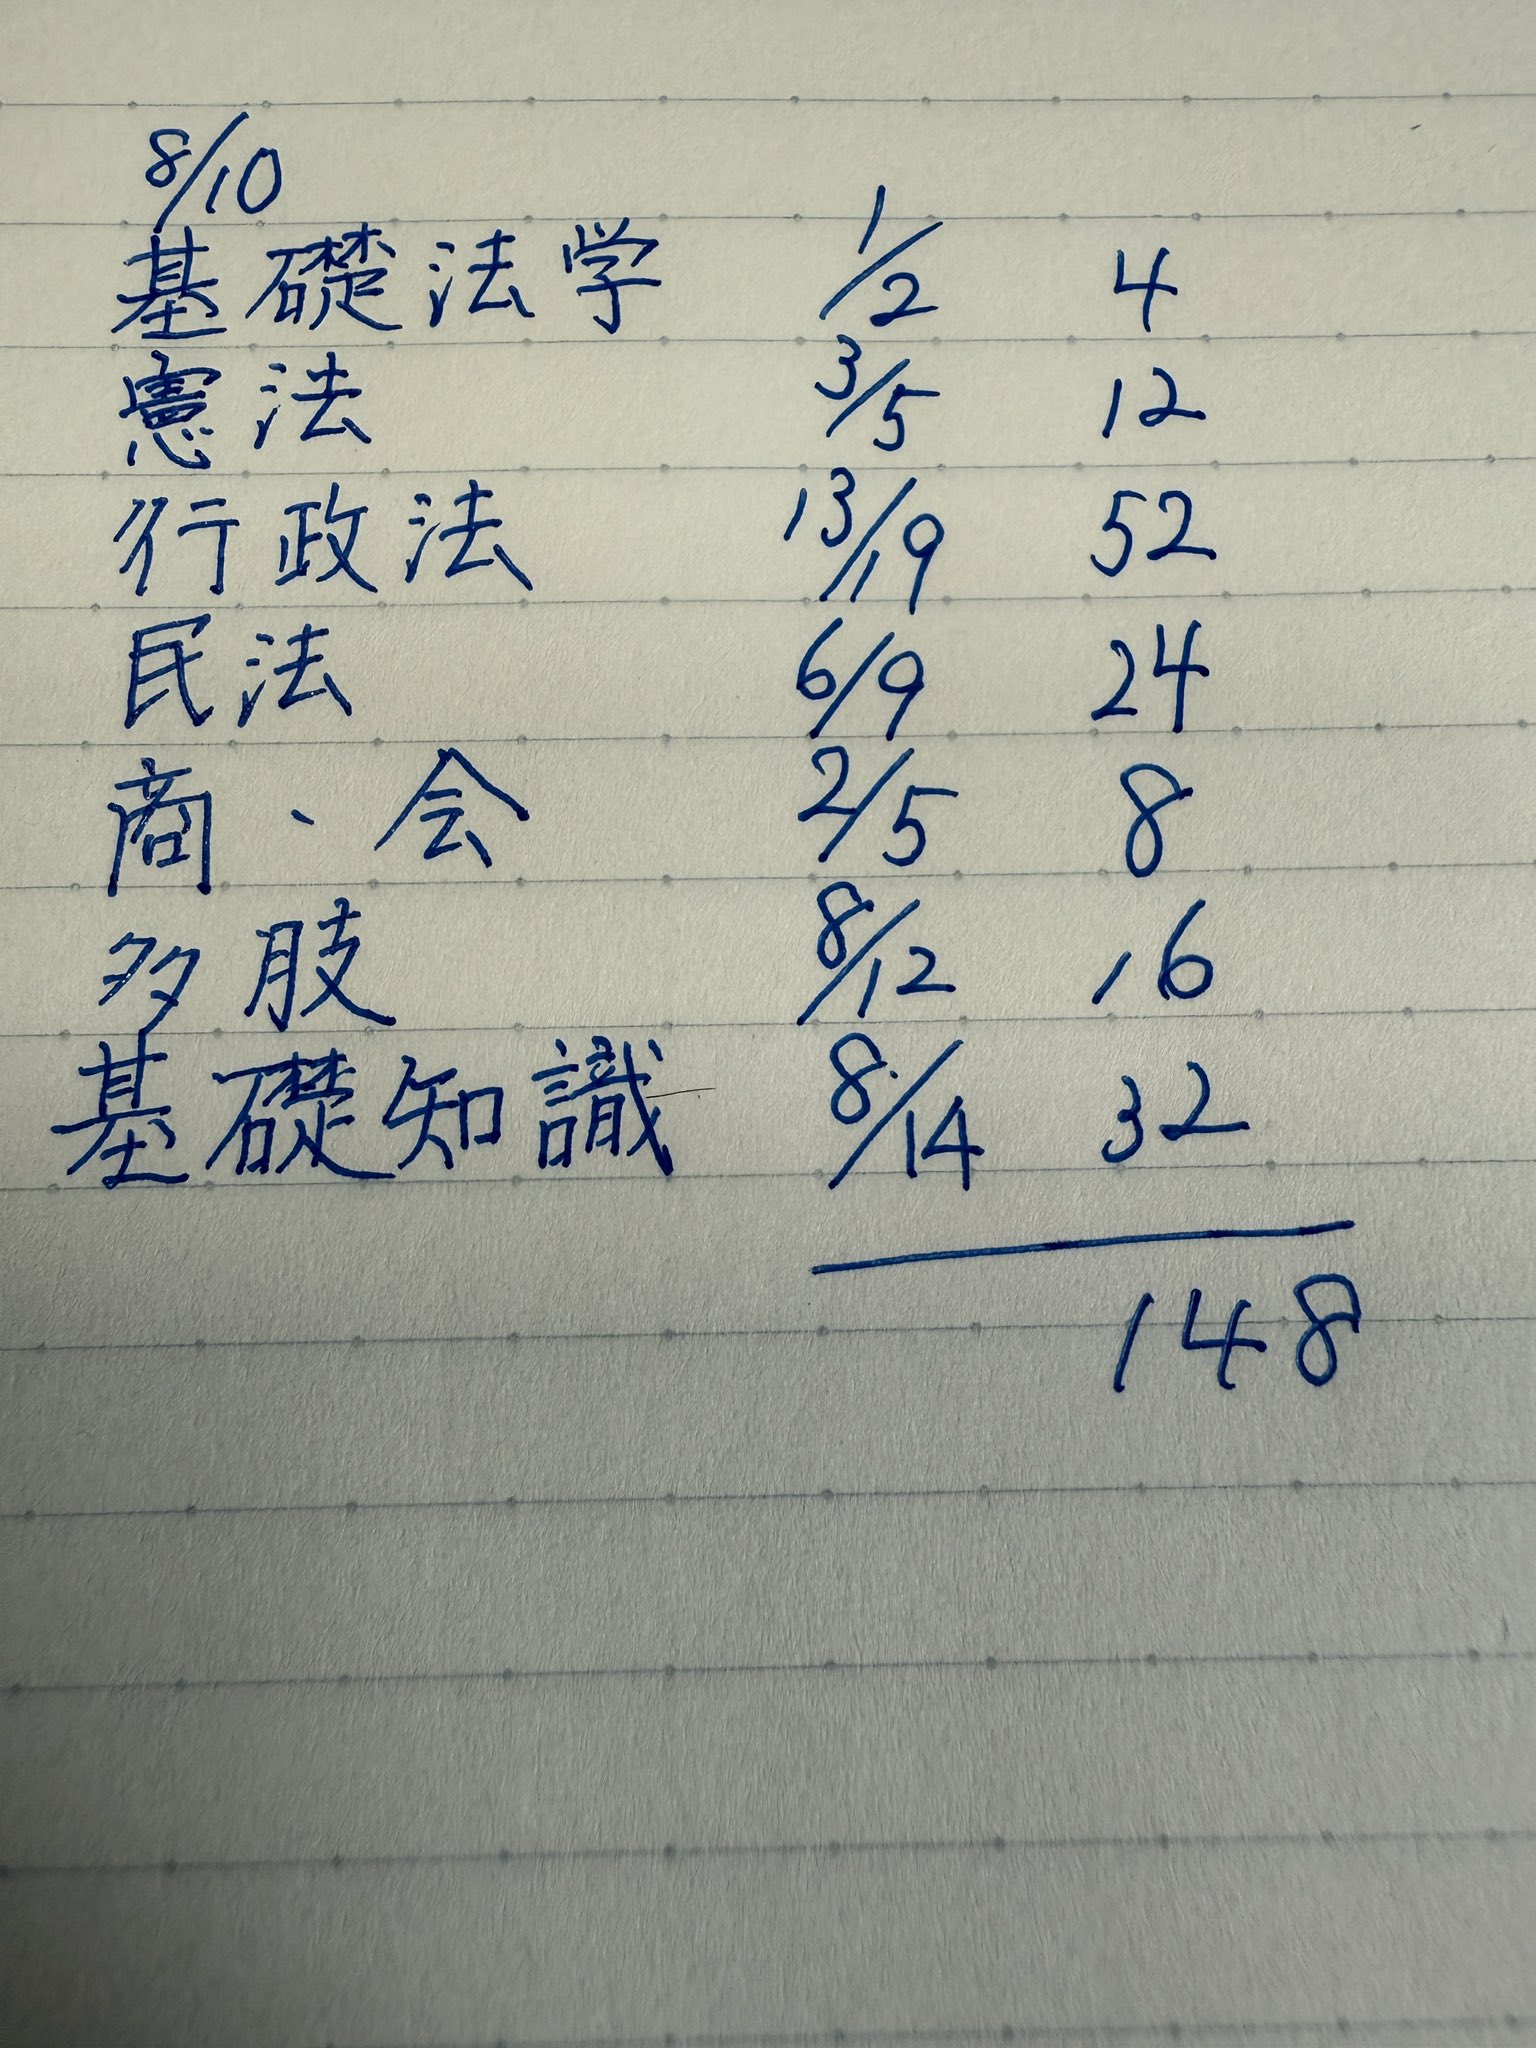 8/10
基礎法学 1/2 4
憲法 3/5 12
行政法 13/19 52
民法 6/9 24
商、会 2/5 8
多肢 8/12 16
基礎知識 8/14 32
148